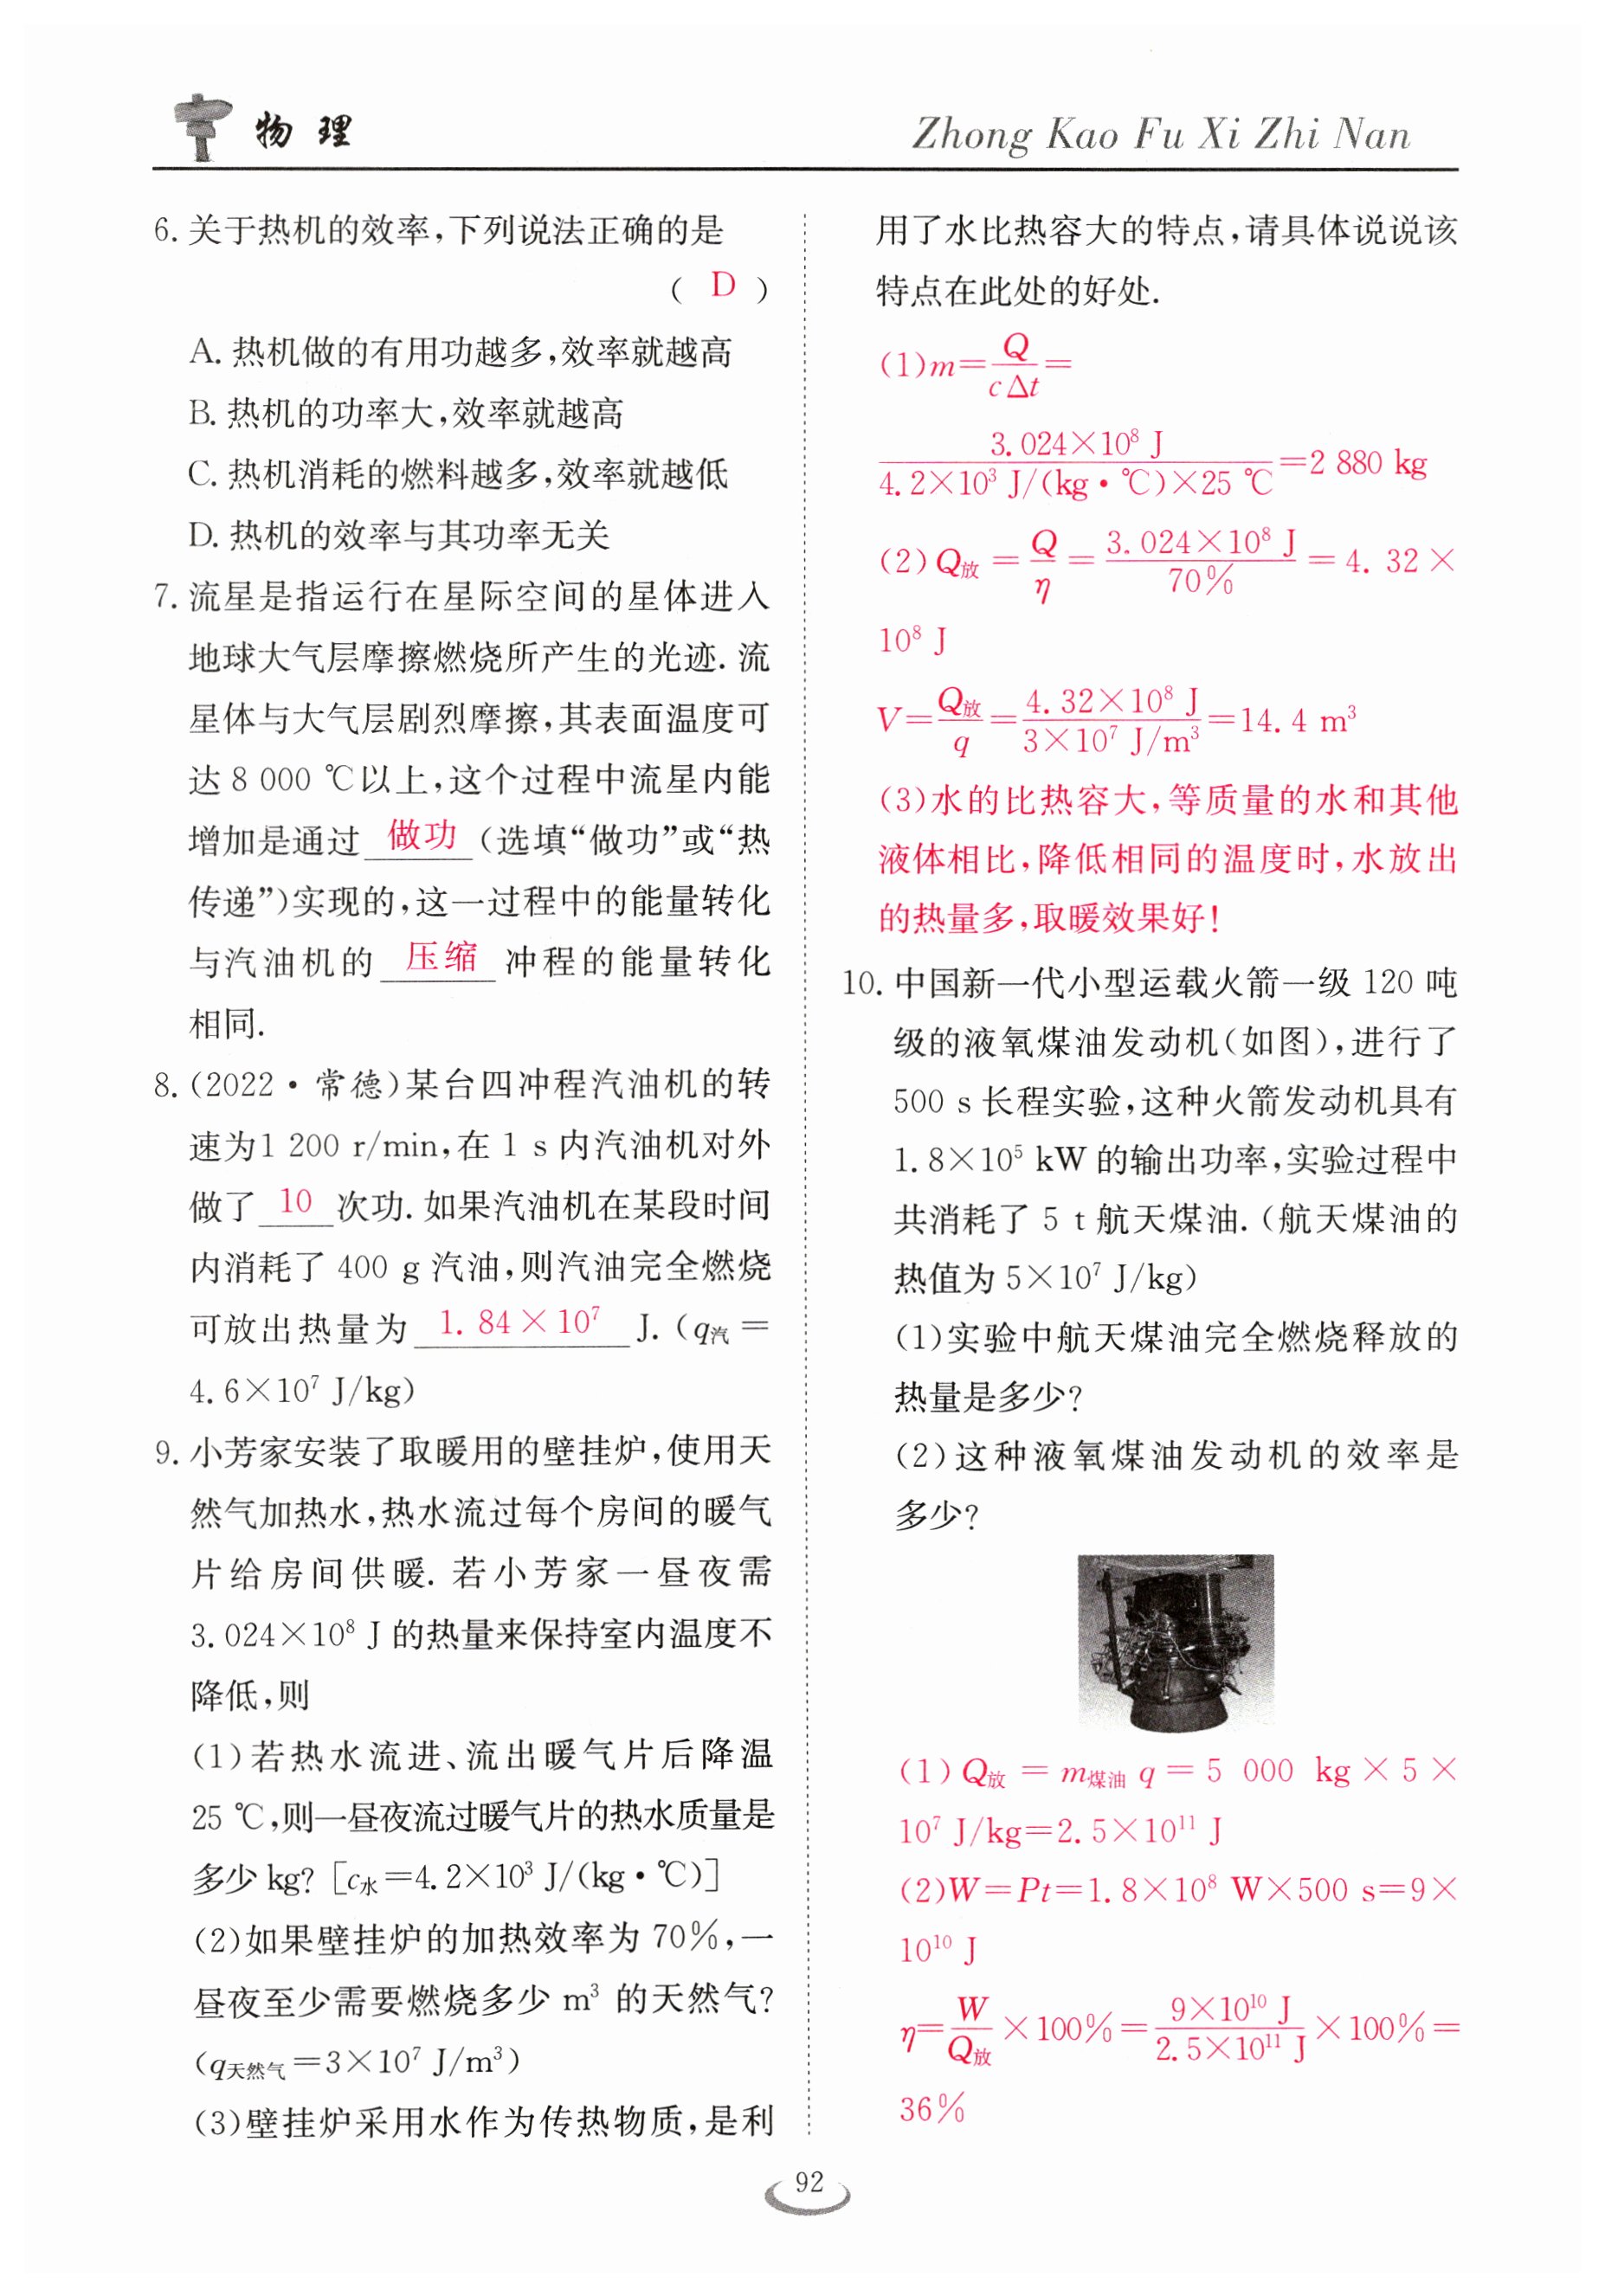 物理
Zhong Kao Fu Xi Zhi Nan
6. 关于热机的效率,下列说法正确的是
( D )
A. 热机做的有用功越多,效率就越高
B. 热机的功率大,效率就越高
C. 热机消耗的燃料越多,效率就越低
D. 热机的效率与其功率无关
7. 流星是指运行在星际空间的星体进入
地球大气层摩擦燃烧所产生的光迹. 流
星体与大气层剧烈摩擦,其表面温度可
达 8 000 ℃以上,这个过程中流星内能
增加是通过 做功 (选填“做功”或“热
传递”)实现的,这一过程中的能量转化
与汽油机的 压缩 冲程的能量转化
相同.
8. (2022·常德)某台四冲程汽油机的转
速为1 200 r/min,在 1 s 内汽油机对外
做了 10 次功. 如果汽油机在某段时间
内消耗了 400 g 汽油,则汽油完全燃烧
可放出热量为 1. 84×10⁷ J. (q汽＝
4. 6×10⁷ J/kg)
9. 小芳家安装了取暖用的壁挂炉,使用天
然气加热水,热水流过每个房间的暖气
片给房间供暖. 若小芳家一昼夜需
3. 024×10⁸ J 的热量来保持室内温度不
降低,则
(1)若热水流进、流出暖气片后降温
25 ℃,则一昼夜流过暖气片的热水质量是
多少 kg? [c水＝4. 2×10³ J/(kg·℃)]
(2)如果壁挂炉的加热效率为 70%,一
昼夜至少需要燃烧多少 m³ 的天然气?
(q天然气＝3×10⁷ J/m³)
(3)壁挂炉采用水作为传热物质,是利
用了水比热容大的特点,请具体说说该
特点在此处的好处.
(1)m＝Q/cΔt＝
3. 024×10⁸ J/4. 2×10³ J/(kg·℃)×25 ℃＝2 880 kg
(2)Q放＝Q/η＝3. 024×10⁸ J/70%＝4. 32×
10⁸ J
V＝Q放/q＝4. 32×10⁸ J/3×10⁷ J/m³＝14. 4 m³
(3)水的比热容大,等质量的水和其他
液体相比,降低相同的温度时,水放出
的热量多,取暖效果好!
10. 中国新一代小型运载火箭一级 120 吨
级的液氧煤油发动机(如图),进行了
500 s 长程实验,这种火箭发动机具有
1. 8×10⁵ kW 的输出功率,实验过程中
共消耗了 5 t 航天煤油. (航天煤油的
热值为 5×10⁷ J/kg)
(1)实验中航天煤油完全燃烧释放的
热量是多少?
(2)这种液氧煤油发动机的效率是
多少?
(1)Q放＝m煤油 q＝5 000 kg×5×
10⁷ J/kg＝2. 5×10¹¹ J
(2)W＝Pt＝1. 8×10⁸ W×500 s＝9×
10¹⁰ J
η＝W/Q放×100%＝9×10¹⁰ J/2. 5×10¹¹ J×100%＝
36%
92